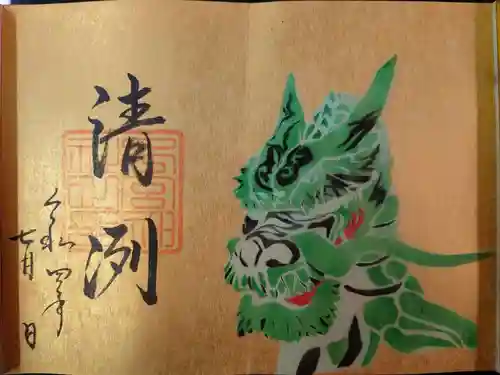 清洌
令和四年
七月 日